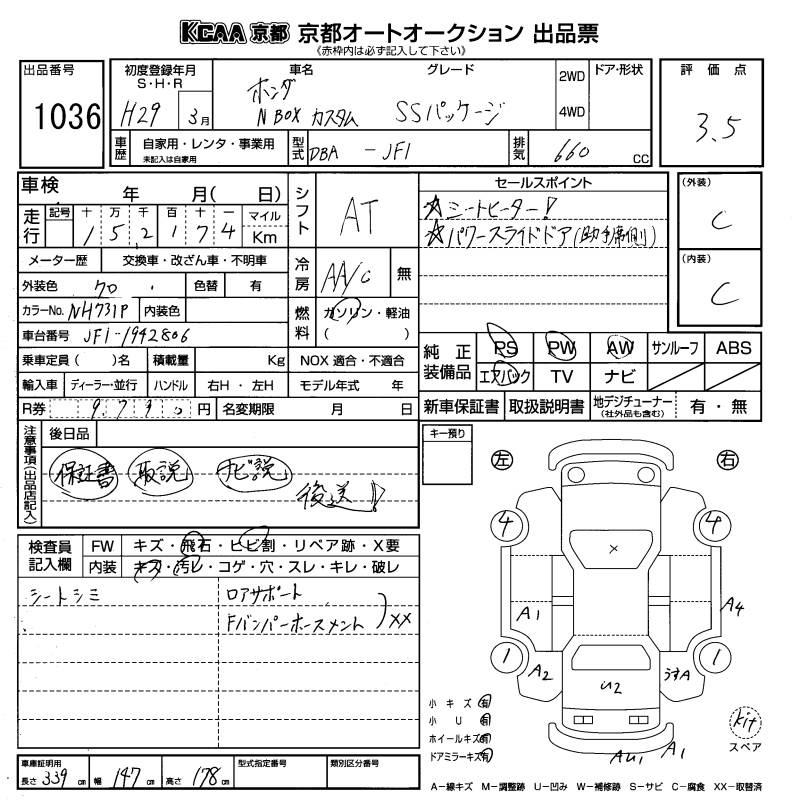 KCAA 京都 京都オートオークション 出品票
《赤枠内は必ず記入して下さい》
出品番号
1036
初度登録年月
S・H・R
H29 3月
車名
ホンダ
N BOX カスタム
グレード
SSパッケージ
2WD
4WD
ドア・形状
評価点
3.5
車歴
自家用・レンタ・事業用
未記入は自家用
型式
DBA -JF1
排気
660 cc
車検 年 月( 日)
走行
記号 十 万 千 百 十 一 マイル
1 5 2 1 7 4 Km
メーター歴 交換車・改ざん車・不明車
外装色 クロ 色替 有
カラーNo. NH731P 内装色
車台番号 JF1-1942806
乗車定員 ( )名 積載量 Kg
輸入車 ディーラー・並行 ハンドル 右H・左H
R券 9,790 円 名変期限 月 日
シフト AT
冷房 AA/C 無
燃料 ガソリン・軽油
( )
NOX 適合・不適合
モデル年式 年
セールスポイント
☆シートヒーター!
☆パワースライドドア(助手席側)
(外装)
C
(内装)
C
純正装備品
PS PW AW サンルーフ ABS
エアバック TV ナビ
新車保証書 取扱説明書 地デジチューナー
(社外品も含む)
有・無
注意事項(出品店記入)
後日品
保証書 取説 ナビ説 後送!
キー預り
左 右
検査員記入欄
FW キズ・飛石・ヒビ割・リペア跡・X要
内装 キズ・汚レ・コゲ・穴・スレ・キレ・破レ
シートシミ
ロアサポート
Fバンパーホースメント
)XX
4 4
X
A1 A4
1 1
A2 U2 うすA
AU1 A1
小キズ 有
小U 有
ホイールキズ 有
ドアミラーキズ 有
kit
スペア
車庫証明用
長さ 339 cm 幅 147 cm 高さ 178 cm
型式指定番号
類別区分番号
A−線キズ M−調整跡 U−凹み W−補修跡 S−サビ C−腐食 XX−取替済